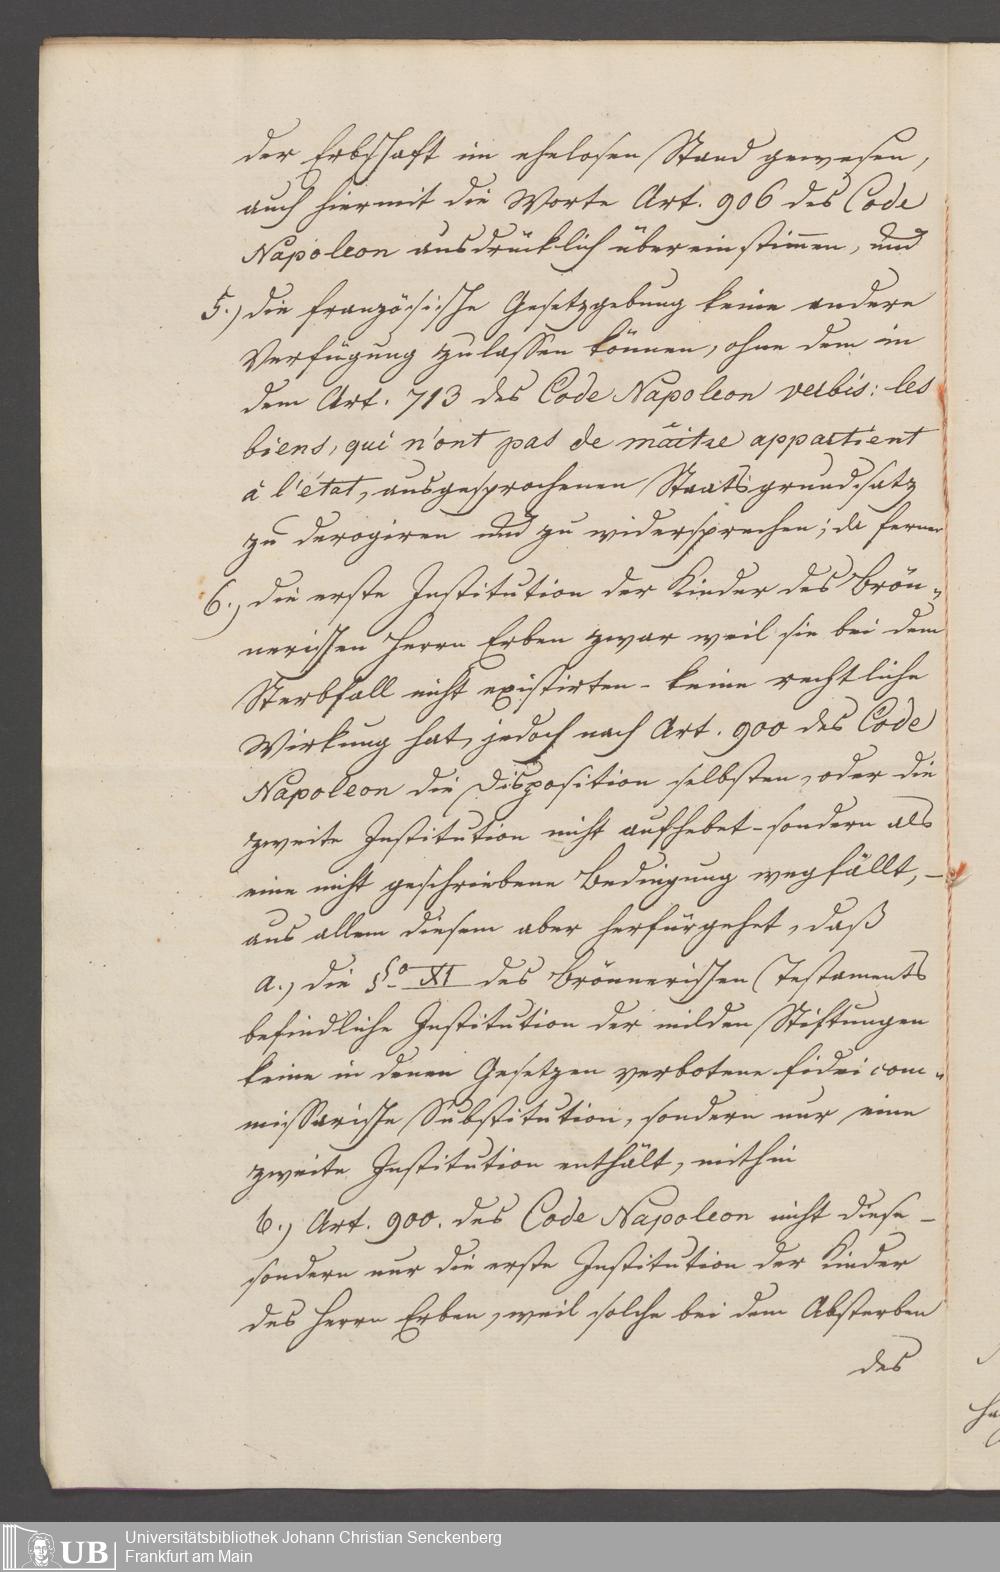 der Erbschaft im ehelosen Stand gewesen,
auch hiermit die Worte Art. 906 des Code
Napoleon ausdrücklich übereinstimmen, und
5.) die französische Gesetzgebung keine andere
Verfügung zulassen können, ohne dem in
dem Art. 713 des Code Napoleon verbis: les
biens, qui n'ont pas de màitre appartient
à l'état, ausgesprochenen Staatsgrundsatz
zu derogiren und zu widersprechen; da ferner
6.) die erste Institution der Kinder des Brön„
nerischen Herrn Erben zwar weil sie bei dem
Sterbfall nicht existirten - keine rechtliche
Wirkung hat, jedoch nach Art. 900 des Code
Napoleon die Disposition selbsten, oder die
zweite Institution nicht aufhebet - sondern als
eine nicht geschriebene Bedingung wegfällt, -
aus allem diesem aber herfürgehet, daß
a.) die §o XI des Brönnerischen Testaments
befindliche Institution der milden Stiftungen
keine in denen Gesetzen verbotene fidei com„
missarische Substitution, sondern nur eine
zweite Institution enthält, mithin
b.) Art. 900. des Code Napoleon nicht diese -
sondern nur die erste Institution der Kinder
des Herrn Erben, weil solche bei dem Absterben
des
UB
Universitätsbibliothek Johann Christian Senckenberg
Frankfurt am Main